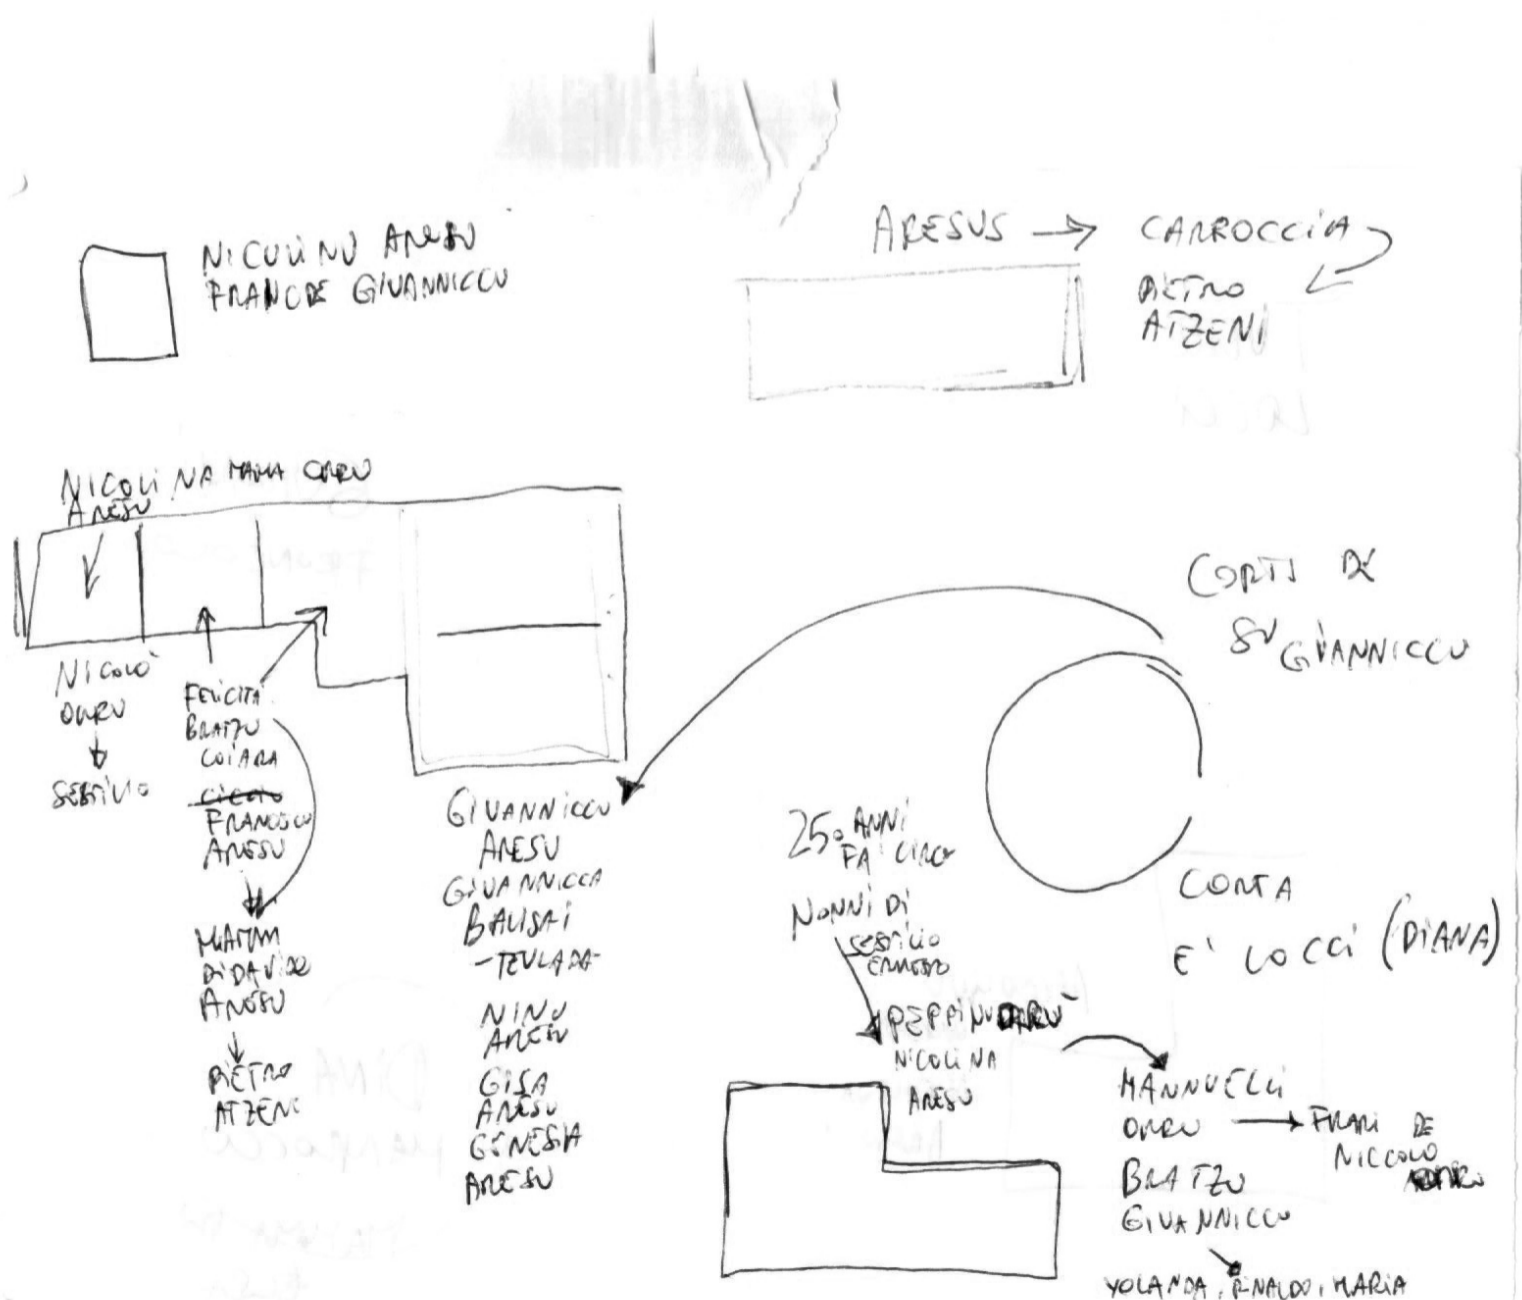 NICOLINU ARESU
FRANCDE GIVANNICCU
ARESUS → CARROCCIA
PIETRO
ATZENI
NICOLINA MAMA ORRU
ARESU
NICOLÒ
ORRU
FELICITA
BRATZU
COIADA
CICCIO
FRANCISCU
ARESU
MIAMM
DI DAVIDE
ARESU
PIETRO
ATZENI
GIVANNICCU
ARESU
GIVANNICCA
BALISAI
-TEULADA-
NINU
ARESU
GISA
ARESU
GENESIA
ARESU
CORTI DE
SU GIVANNICCU
CORTA
E' LOCCI (DIANA)
250 ANNI
FA CIRCA
NONNI DI
ERNESTO
PEPPINU ORRU
NICOLINA
ARESU
MANNUELI
ORRU → FRARI DE
NICCOLO
BRATZU
GIVANNICCU
YOLANDA, RINALDO, MARIA